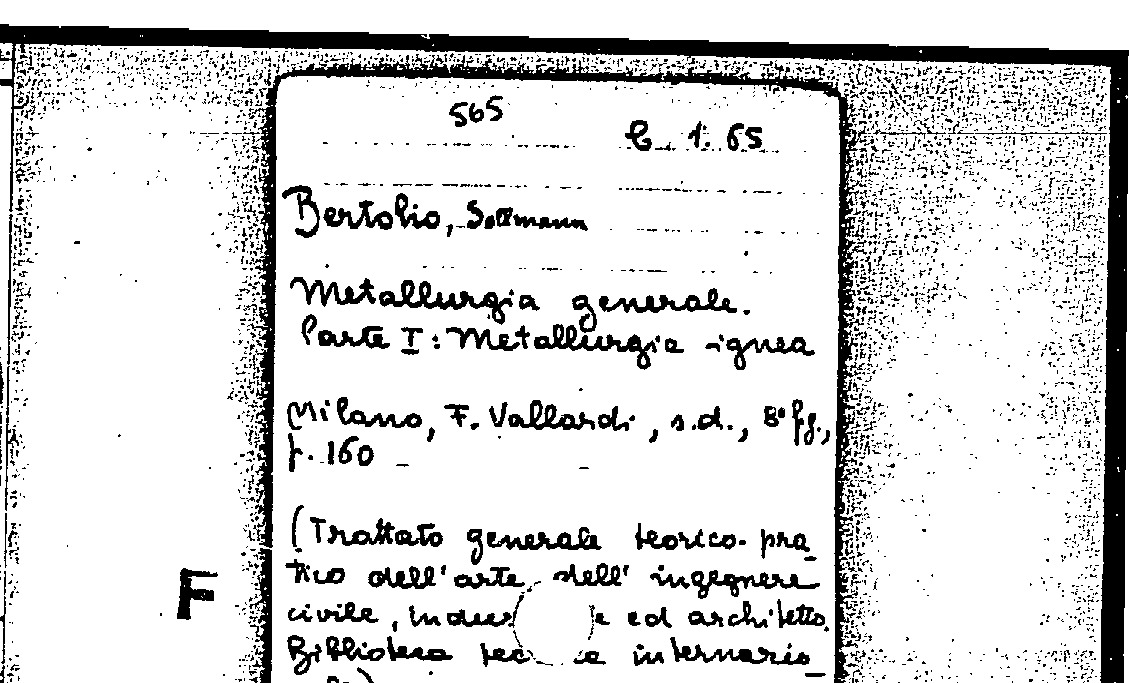 565
C. 1. 65
Bertolio, Sollmann
Metallurgia generale.
Parte I: Metallurgia ignea
Milano, F. Vallardi, s.d., 8° fg.,
p. 160
(Trattato generale teorico-pra_
tico dell'arte dell' ingegnere
civile, indus e ed architetto.
Biblioteca tec a internazio_
F